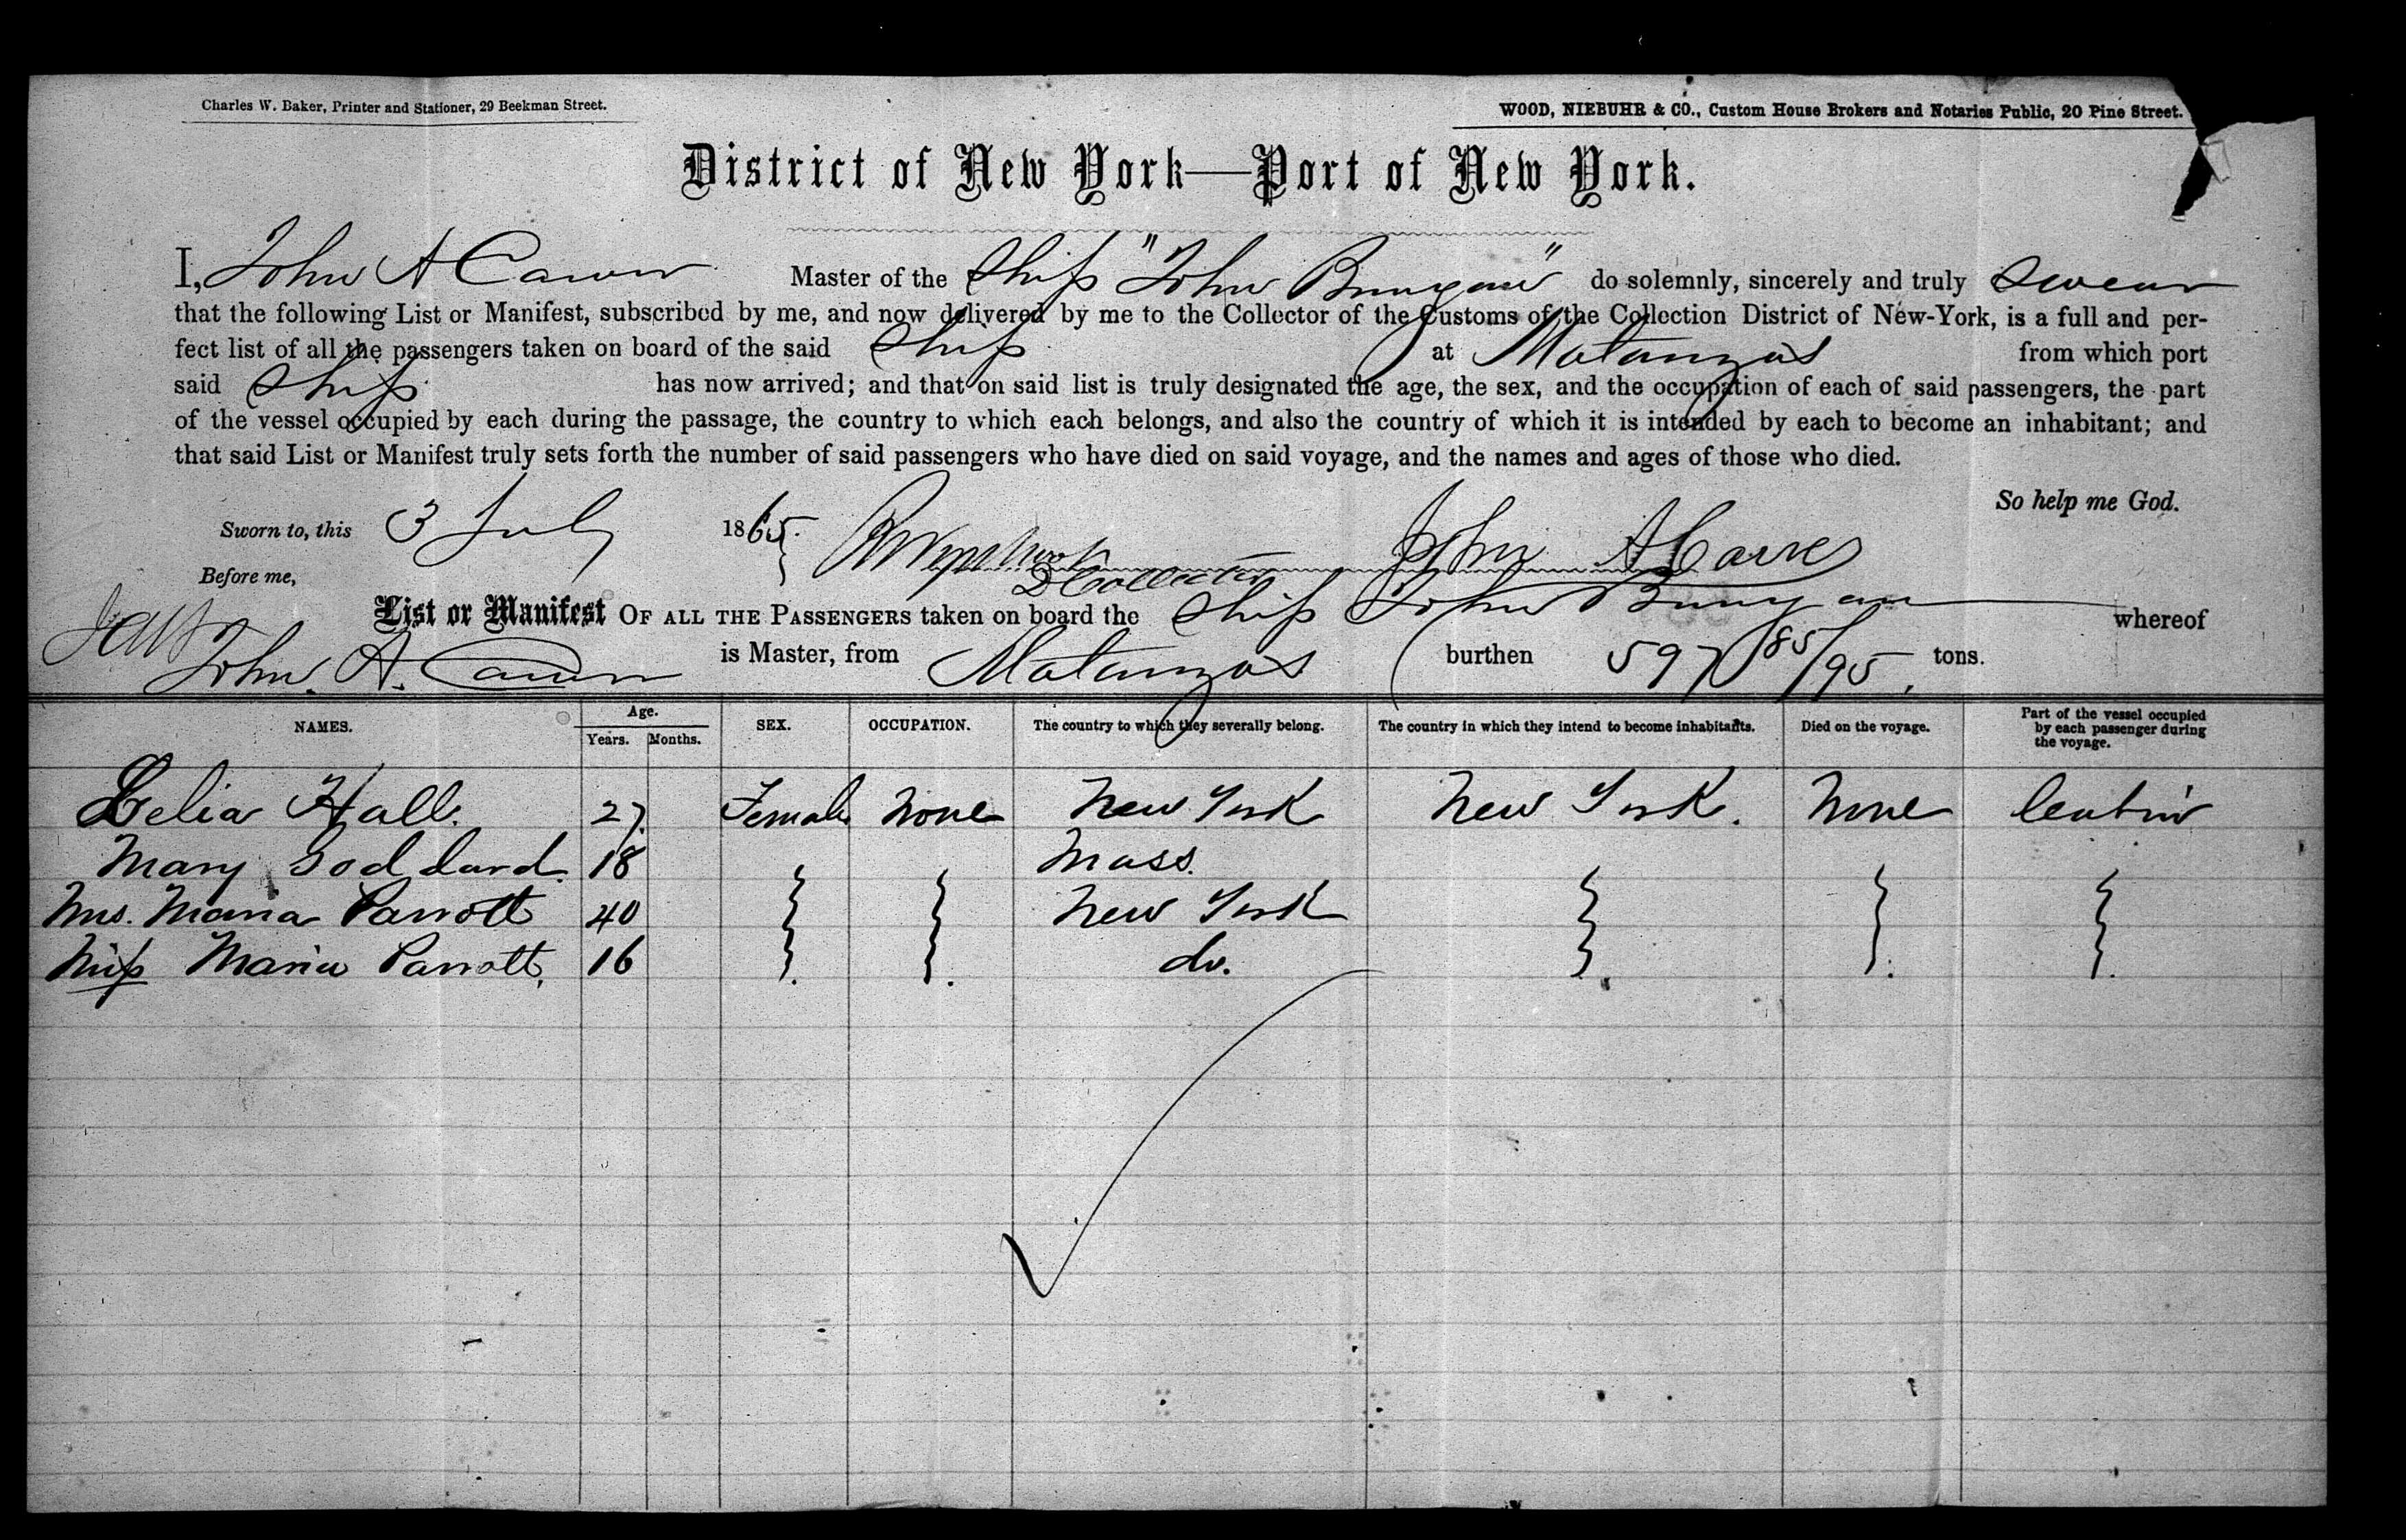 Charles W. Baker, Printer and Stationer, 29 Beekman Street.
WOOD, NIEBUHR & CO., Custom House Brokers and Notaries Public, 20 Pine Street.
District of New York—Port of New York.
I, John A Carver Master of the Ship "John Bunyan" do solemnly, sincerely and truly swear
that the following List or Manifest, subscribed by me, and now delivered by me to the Collector of the Customs of the Collection District of New-York, is a full and per-
fect list of all the passengers taken on board of the said Ship at Matanzas from which port
said Ship has now arrived; and that on said list is truly designated the age, the sex, and the occupation of each of said passengers, the part
of the vessel occupied by each during the passage, the country to which each belongs, and also the country of which it is intended by each to become an inhabitant; and
that said List or Manifest truly sets forth the number of said passengers who have died on said voyage, and the names and ages of those who died.
So help me God.
Sworn to, this 3 July 1865. John A Carver
Before me, D Collector
List or Manifest OF ALL THE PASSENGERS taken on board the Ship John Bunyan whereof
John A. Carver is Master, from Matanzas burthen 597 85/95 tons.
NAMES. Age. Years. Months. SEX. OCCUPATION. The country to which they severally belong. The country in which they intend to become inhabitants. Died on the voyage. Part of the vessel occupied by each passenger during the voyage.
Lelia Hall. 27. Female None New York New York. None
Mary Goddard. 18 Mass.
Mrs. Maria Parrott 40 New York
Miss Maria Parrott, 16 do.